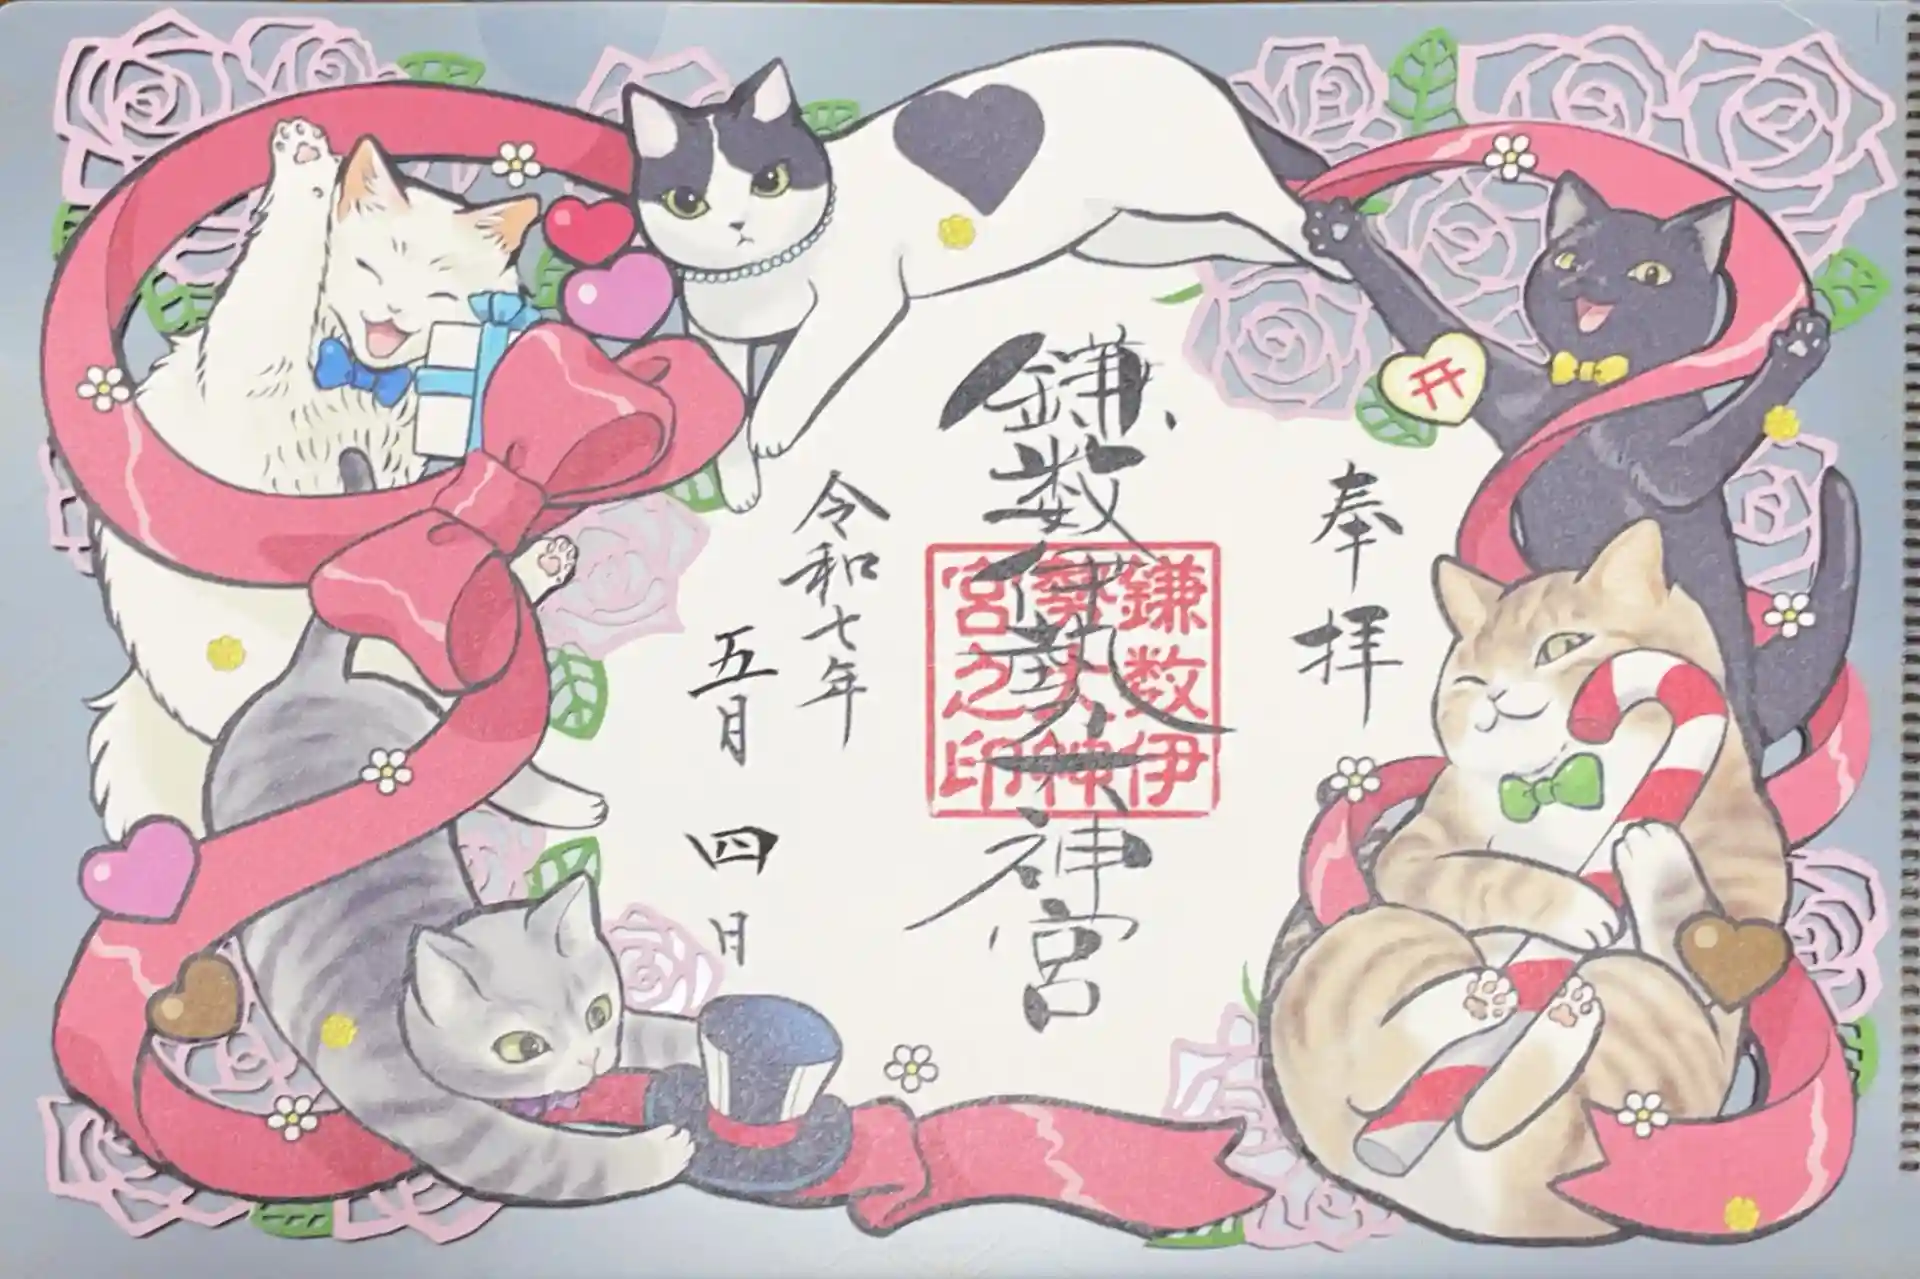 奉拝
鎌数伊勢大神宮
鎌数伊
勢大神
宮之印
令和七年
五月四日